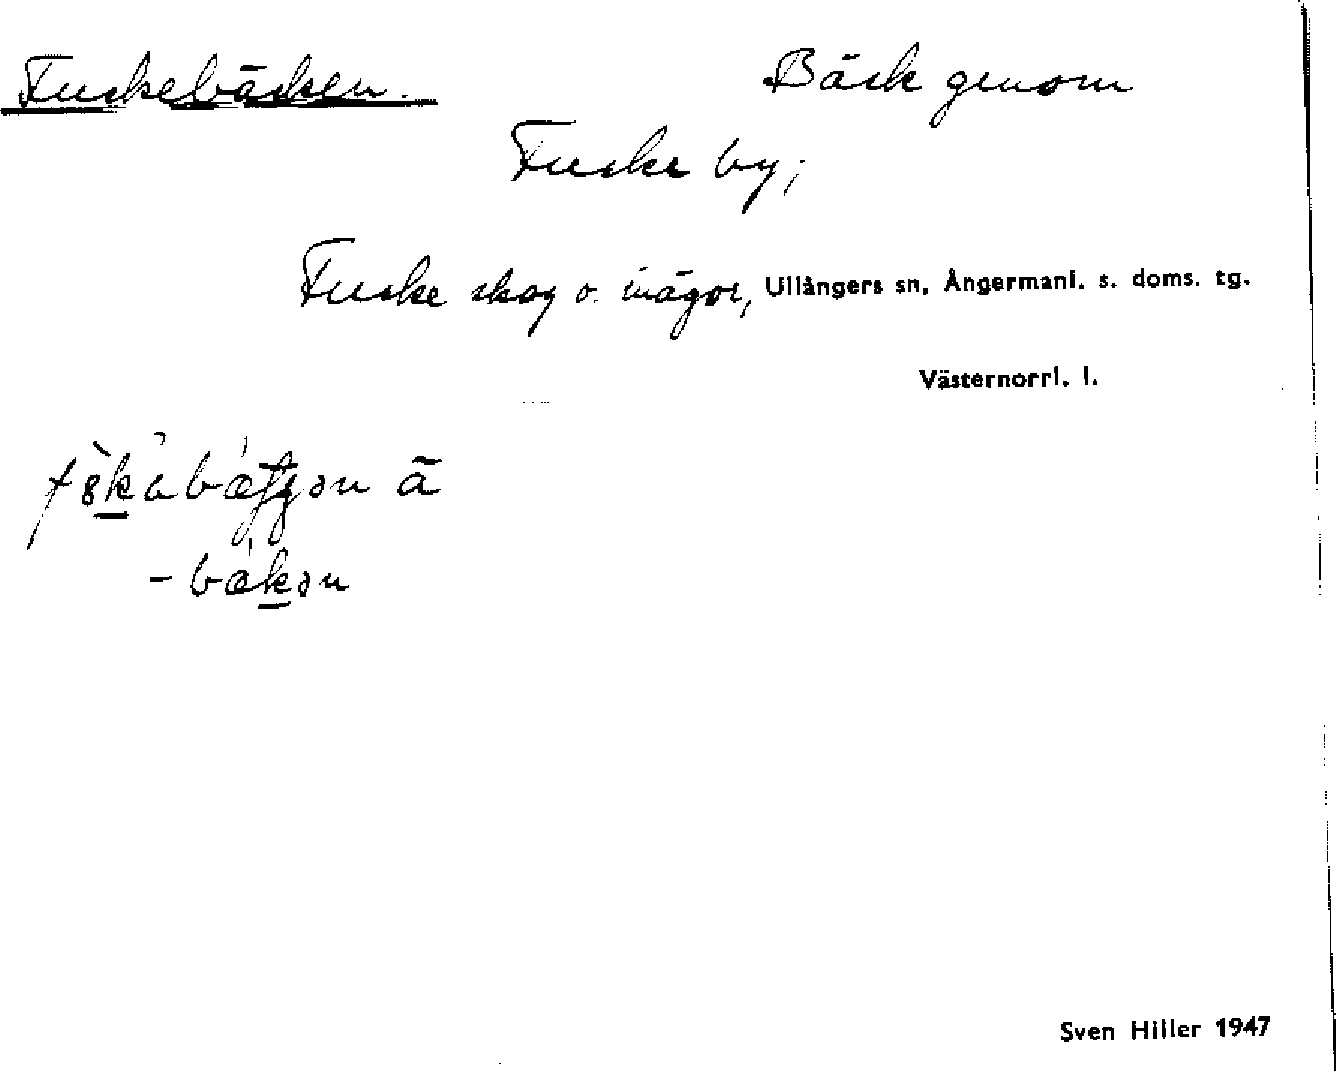 Fuckebäcken. Bäck genom
Fucke by;
Fucke skog o. inägor, Ullångers sn, Ångermanl. s. doms. tg.
Västernorrl. l.
ā
-bækən
Sven Hiller 1947